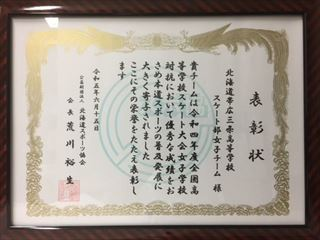 表彰状
北海道帯広三条高等学校
スケート部女子チーム 様
貴チームは令和四年度全国高
等学校スケート大会女子学校
対抗において優秀な成績をお
さめ本道スポーツの普及発展に
大きく寄与されました
ここにその栄誉をたたえ表彰し
ます
令和五年六月十五日
公益財団法人 北海道スポーツ協会
会長 荒川裕生